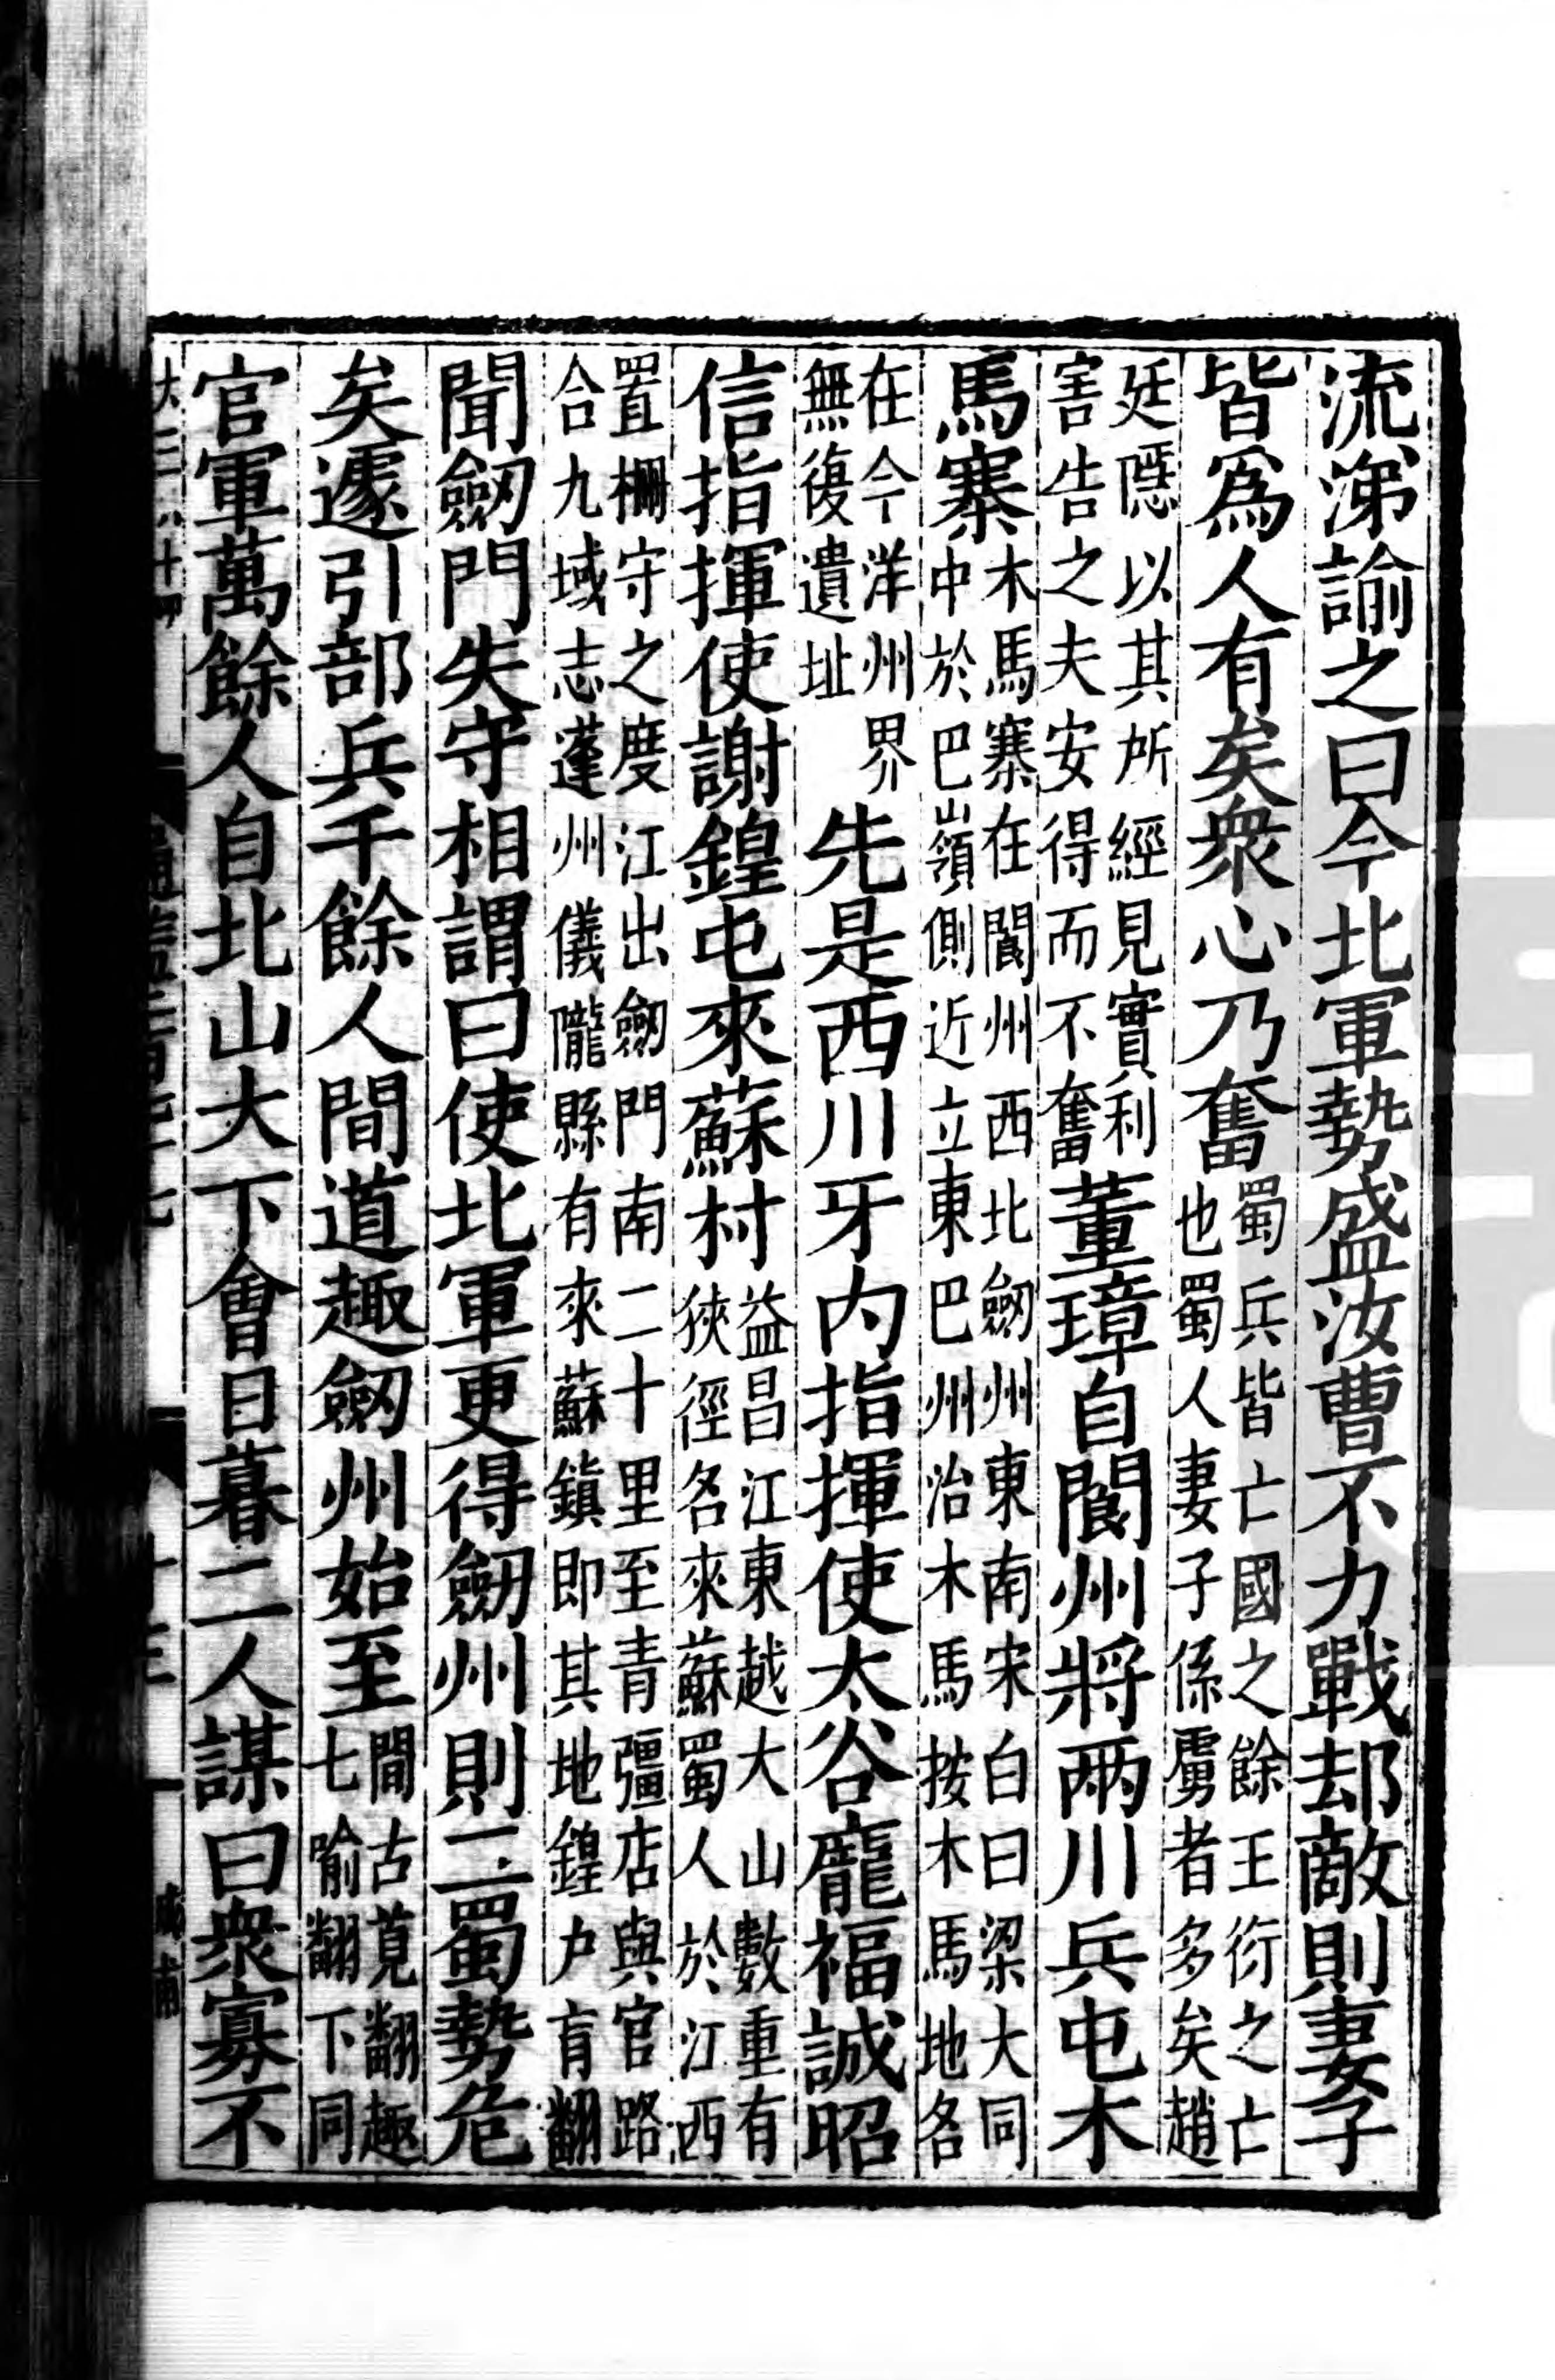 流涕諭之曰今北軍勢盛汝曹不力戰却敵則妻子
皆爲人有矣衆心乃奮蜀兵皆亡國之餘王衍之亡也蜀人妻子係虜者多矣趙
廷隱以其所經見實利害告之夫安得而不奮董璋自閬州將兩川兵屯木
馬寨木馬寨在閬州西北劒州東南宋白曰梁大同中於巴嶺側近立東巴州治木馬按木馬地名
在今洋州界無復遺址先是西川牙内指揮使太谷龐福誠昭
信指揮使謝鍠屯來蘇村益昌江東越大山數重有狹徑名來蘇蜀人於江西
置柵守之度江出劒門南二十里至青彊店與官路合九域志蓬州儀隴縣有來蘇鎮即其地鍠户肓翻
聞劒門失守相謂曰使北軍更得劒州則二蜀勢危
矣遽引部兵千餘人間道趣劒州始至間古莧翻趣七喻翻下同
官軍萬餘人自北山大下會日暮二人謀曰衆寡不